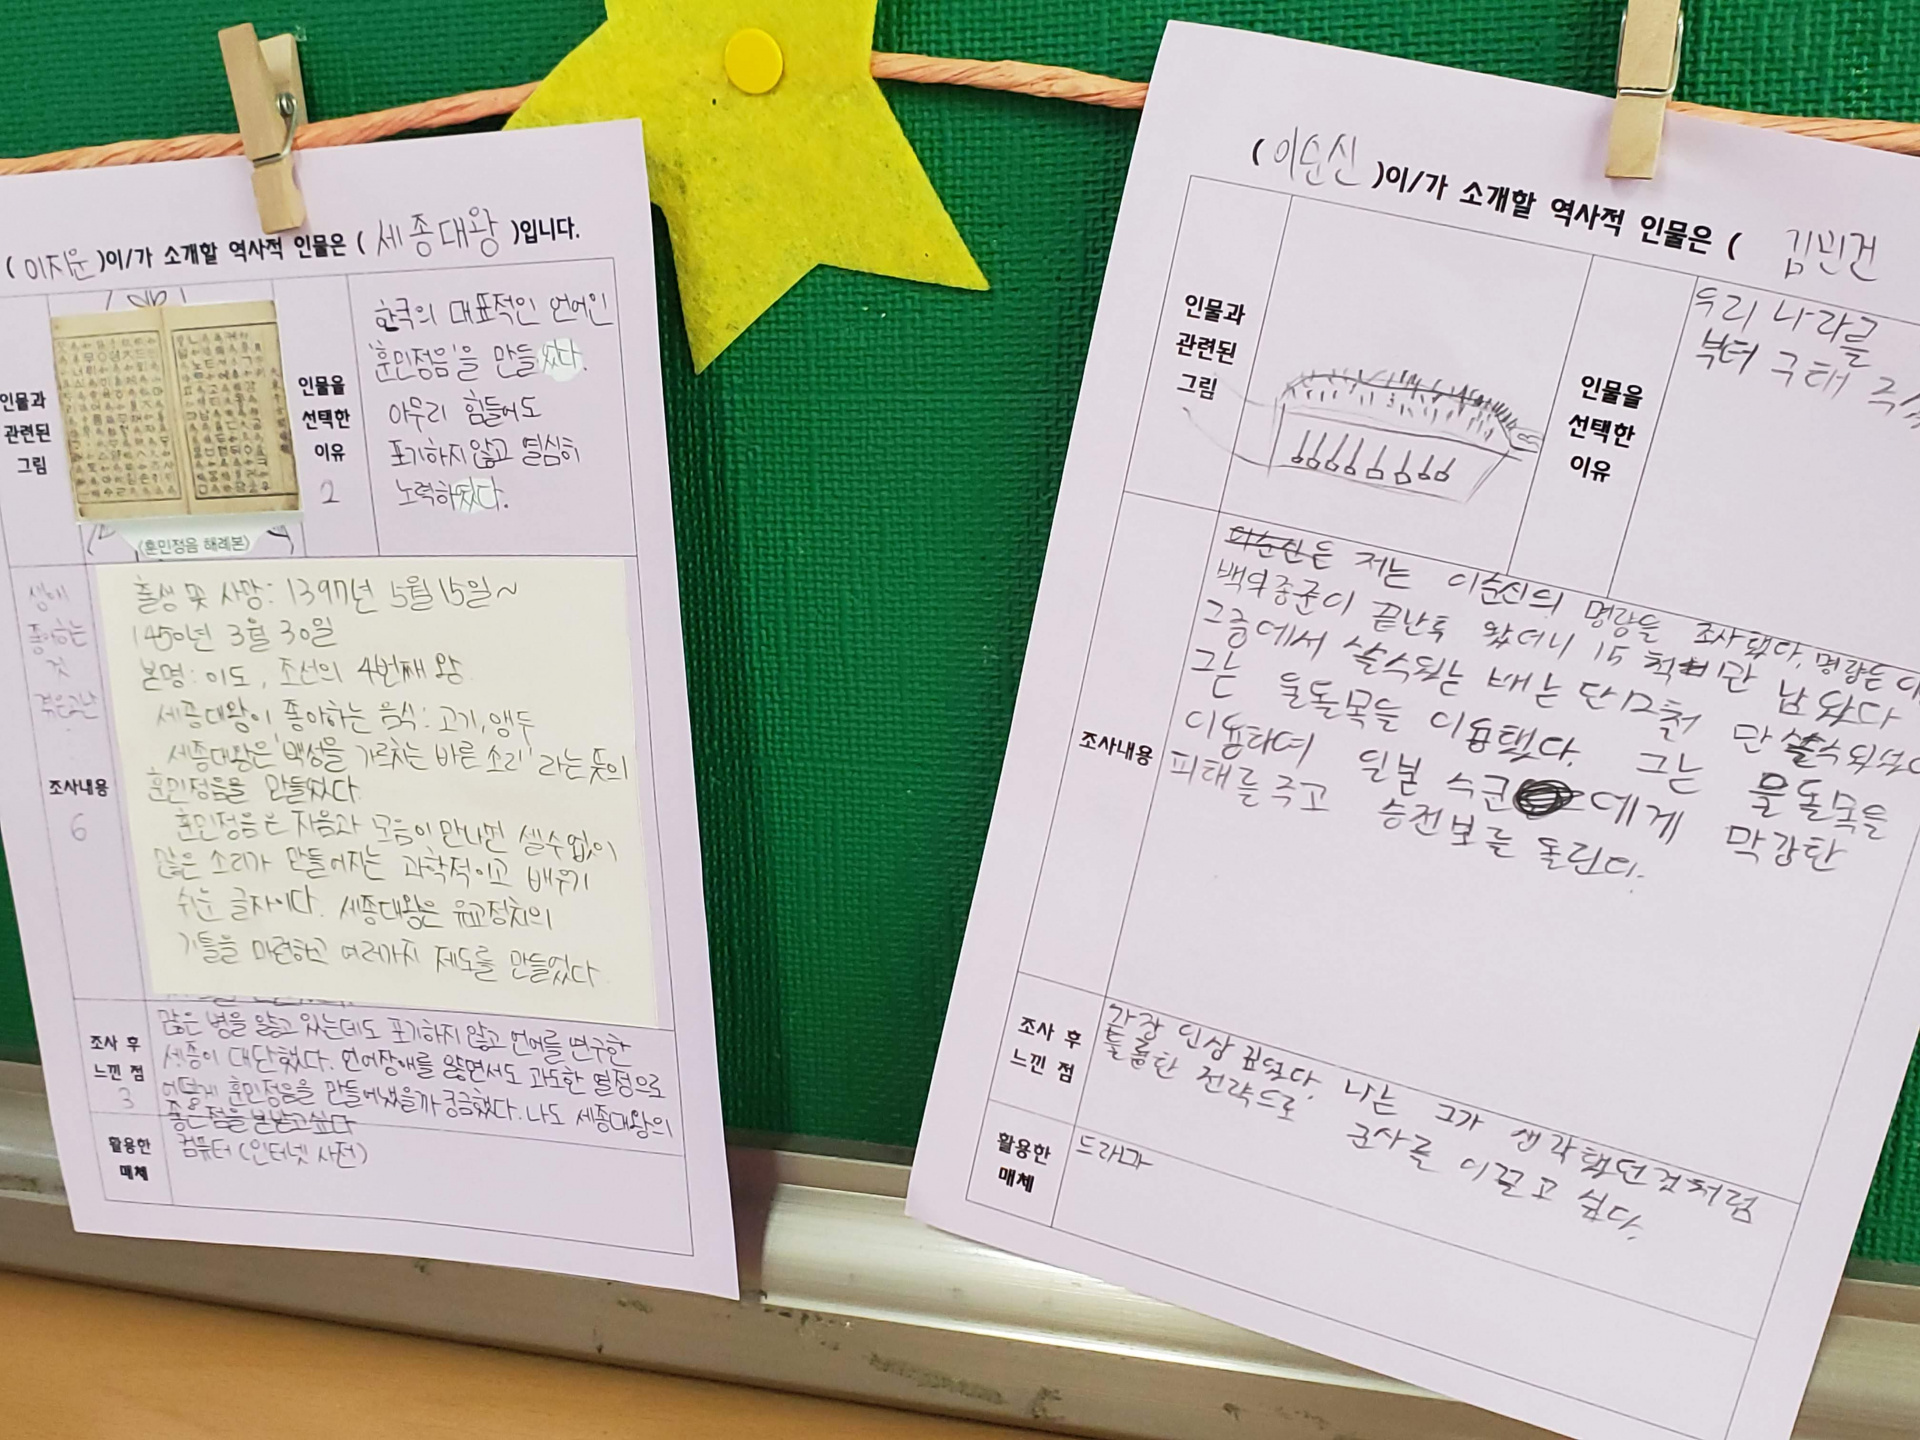 ( 이지윤 )이/가 소개할 역사적 인물은 ( 세종대왕 )입니다.
인물과
관련된
그림
<훈민정음 해례본>
인물을
선택한
이유
2
한국의 대표적인 언어인
'훈민정음'을 만들었다.
아무리 힘들어도
포기하지 않고 열심히
노력하였다.
생애
좋아하는
것
겪은고난
조사내용
6
출생 및 사망: 1397년 5월 15일~
1450년 3월 30일
본명: 이도, 조선의 4번째 왕
세종대왕이 좋아하는 음식: 고기, 앵두
세종대왕은 '백성을 가르치는 바른 소리' 라는 뜻의
훈민정음을 만들었다.
훈민정음은 자음과 모음이 만나면 셀수없이
많은 소리가 만들어지는 과학적이고 배우기
쉬운 글자이다. 세종대왕은 유교정치의
기틀을 마련하고 여러가지 제도를 만들었다
조사 후
느낀 점
3
많은 병을 앓고 있는데도 포기하지 않고 언어를 연구한
세종이 대단했다. 언어장애를 앓면서도 과도한 열정으로
어떻게 훈민정음을 만들어냈을까 궁금했다. 나도 세종대왕의
좋은점을 본받고싶다
활용한
매체
컴퓨터 (인터넷 사전)
( 이순신 )이/가 소개할 역사적 인물은 ( 김민건
인물과
관련된
그림
인물을
선택한
이유
우리 나라를
부터 구해
조사내용
저는 이순신의 명량을 조사했다. 명량은
백의종군이 끝난후 왔더니 15 척 만 남았다
그중에서 쓸수있는 배는 단 12척
그는 울돌목을 이용했다. 그는 울돌목을
이용하여 일본 수군 에게 막강한
피해를 주고 승전보를 돌린다.
조사 후
느낀 점
가장 인상 깊었다. 나는 그가 생각했던것처럼
훌륭한 전략으로 군사를 이끌고 싶다.
활용한
매체
드라마